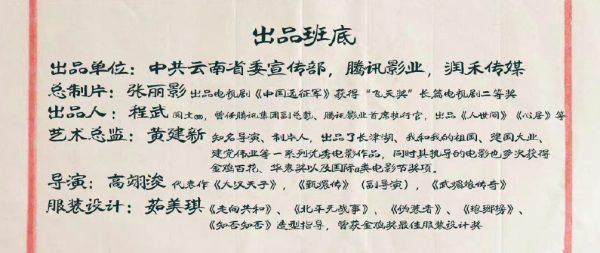 出品班底
出品单位：中共云南省委宣传部，腾讯影业，润禾传媒
总制片：张丽影 出品电视剧《中国远征军》获得“飞天奖”长篇电视剧二等奖
出品人：程武 曾任腾讯集团副总裁、腾讯影业首席执行官，出品《人世间》《心居》等
艺术总监：黄建新 知名导演、制片人，出品了长津湖、我和我的祖国、建国大业、
建党伟业等一系列优秀电影作品，同时其执导的电影也多次获得
金鸡百花、华表奖以及国际a类电影节奖项。
导演：高翊浚 代表作《大汉天子》，《甄嬛传》（副导演），《武媚娘传奇》
服装设计：茹美琪《走向共和》、《北平无战事》、《伪装者》、《琅琊榜》、
《知否知否》造型指导，曾获金鹰奖最佳服装设计奖